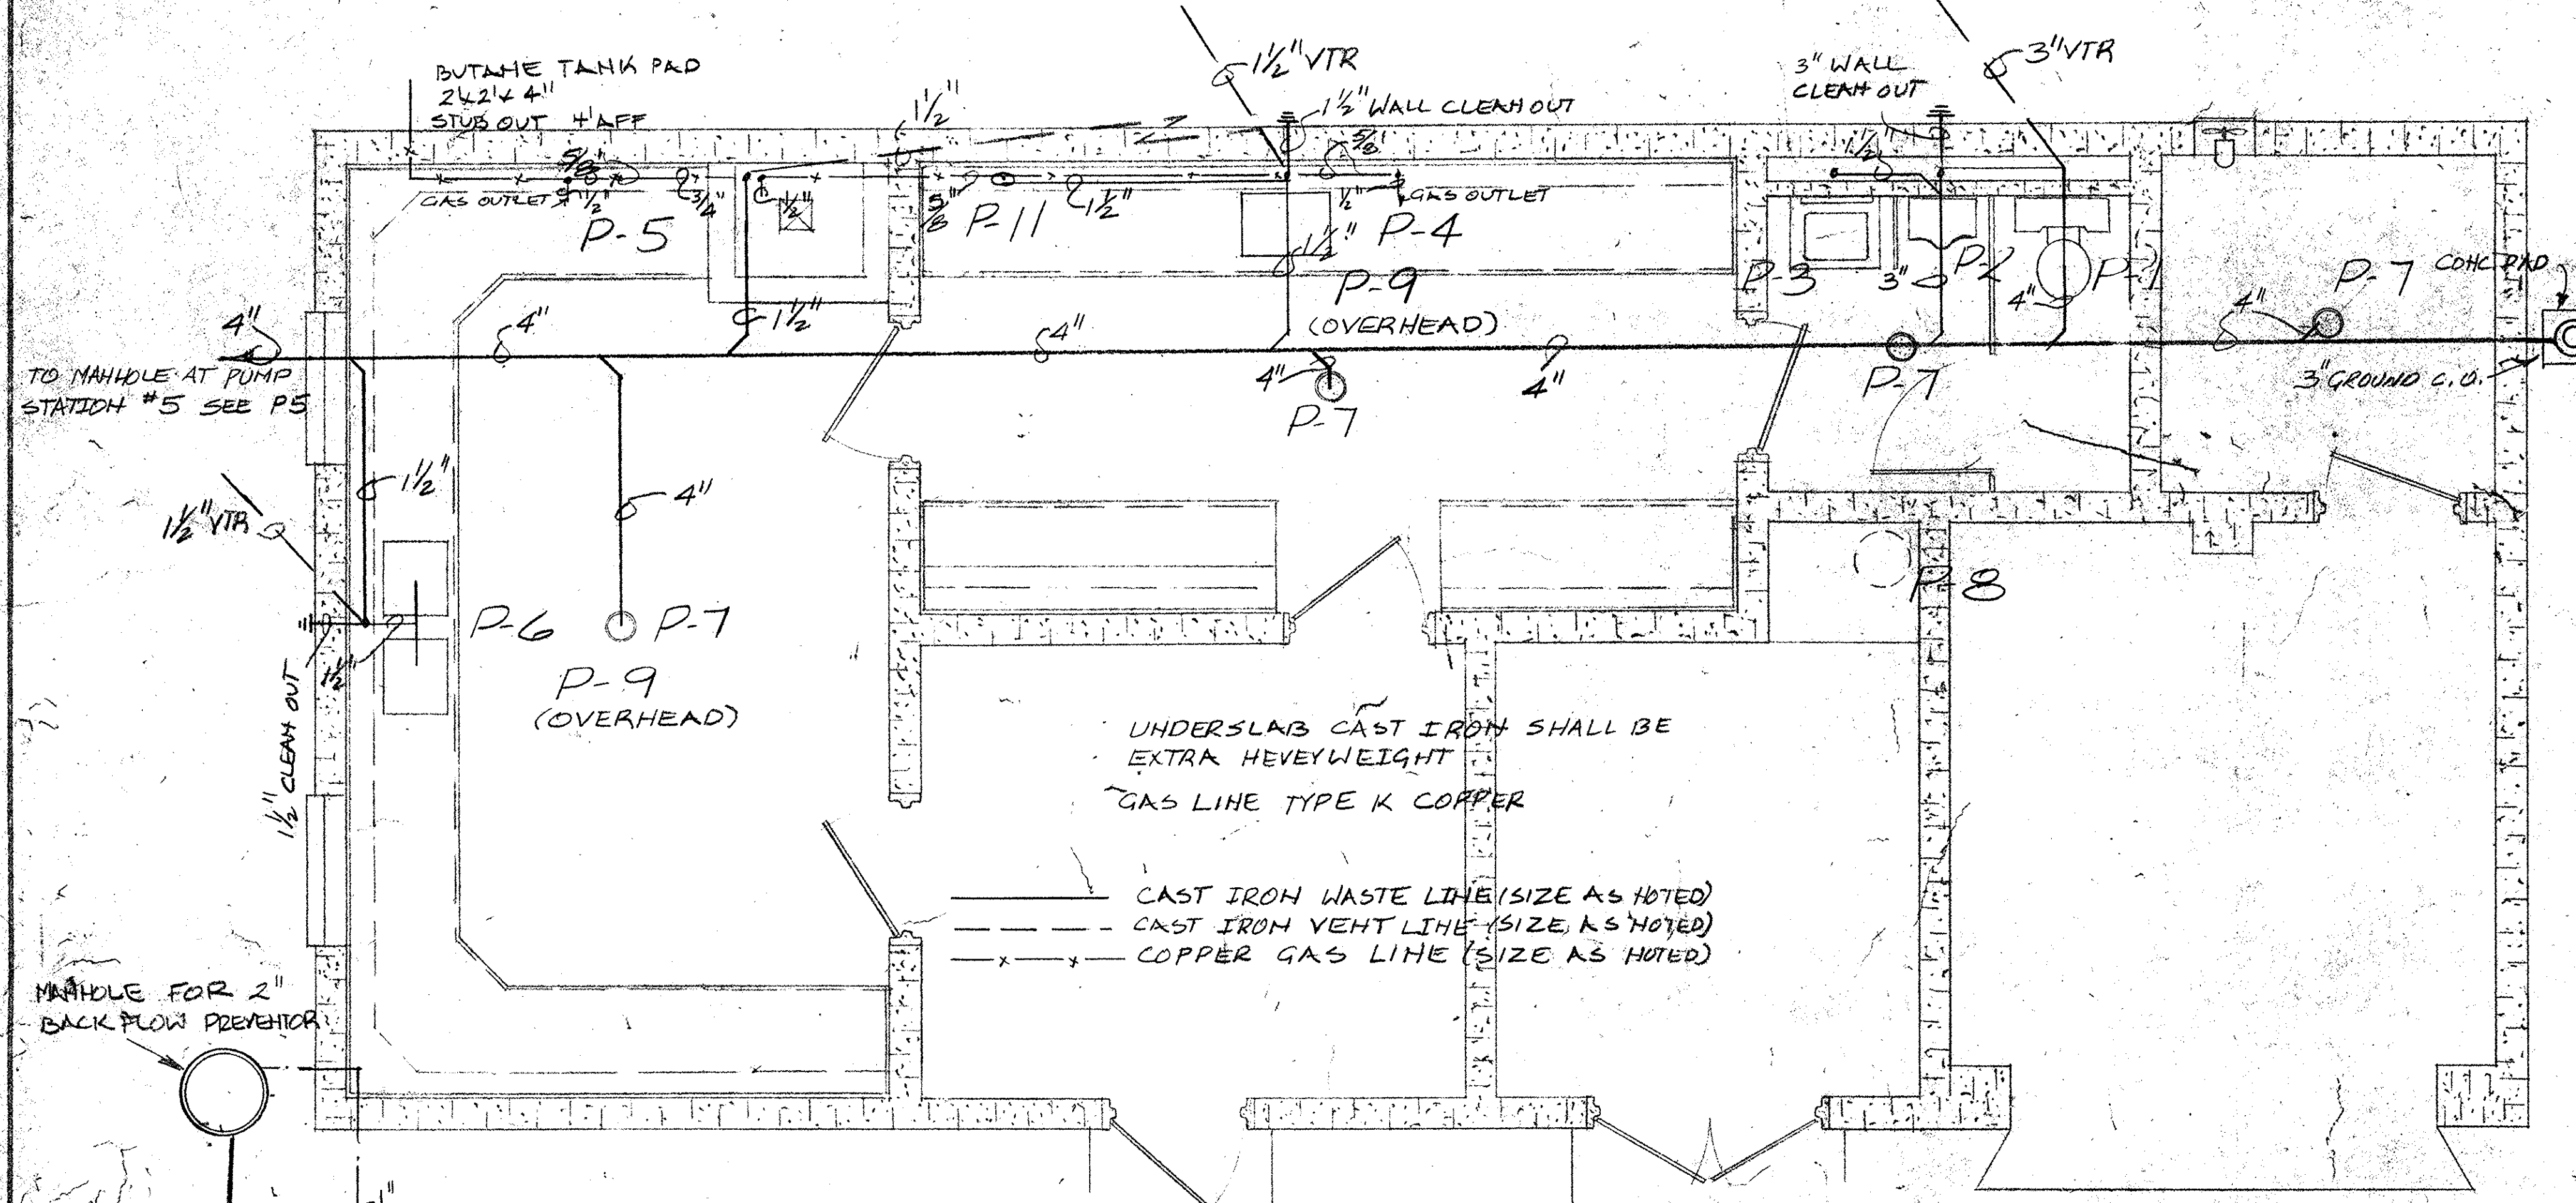 BUTANE TANK PAD
2'x2'x 4"
STUB OUT 4'AFF
1 1/2"
1 1/2" VTR
1 1/2" WALL CLEAN OUT
3" WALL
CLEAN OUT
3" VTR
5/8"
GAS OUTLET
1/2"
3/4"
1/2"
5/8"
1 1/2"
5/8"
1/2"
GAS OUTLET
1 1/2"
P-5
P-11
P-4
1 1/2"
P-9
(OVERHEAD)
P-3
3"
P-2
4"
P-1
P-7
CONC PAD
4"
4"
4"
1 1/2"
4"
4"
P-7
4"
P-7
3" GROUND C.O.
TO MANHOLE AT PUMP
STATION #5 SEE P5
1 1/2"
4"
1 1/2" VTR
P-6
P-7
1 1/2"
1 1/2" CLEAN OUT
P-9
(OVERHEAD)
P-8
UNDERSLAB CAST IRON SHALL BE
EXTRA HEVEYWEIGHT
GAS LINE TYPE K COPPER
CAST IRON WASTE LINE (SIZE AS NOTED)
CAST IRON VENT LINE (SIZE AS NOTED)
COPPER GAS LINE (SIZE AS NOTED)
MANHOLE FOR 2"
BACK FLOW PREVENTOR